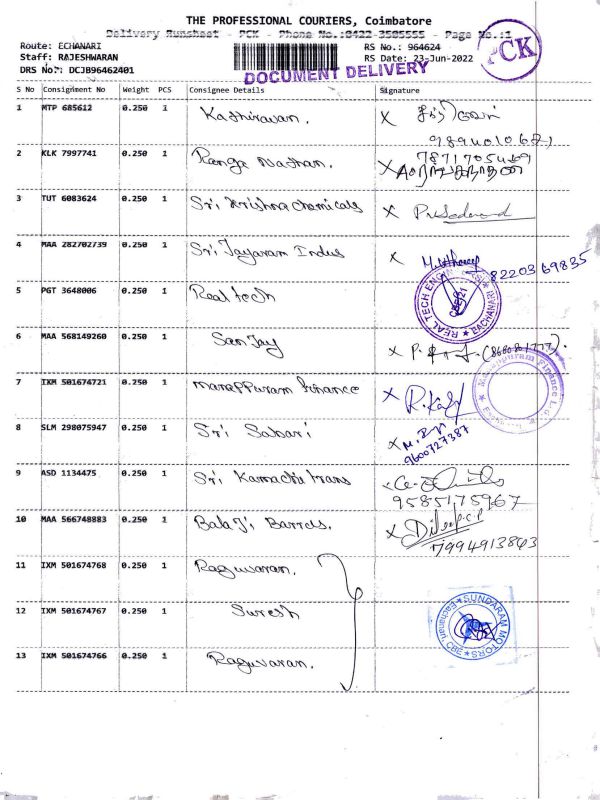 THE PROFESSIONAL COURIERS, Coimbatore
Delivery Runsheet - PCK - Phone No.:0422-3505555 - Page No.:1
Route: ECHANARI
RS No.: 964624
Staff: RAJESHWARAN
RS Date: 23-Jun-2022
DRS No.: DCJB96462401
DOCUMENT DELIVERY
PCK
S No Consignment No Weight PCS Consignee Details Signature
1 MTP 685612 0.250 1 Kathiravan. X
2 KLK 7997741 0.250 1 Ranga Nathan. X
3 TUT 6083624 0.250 1 Sri Krishna Chemicals X
4 MAA 282702739 0.250 1 Sri Jayaram Indus X 8220369835
5 PGT 3648006 0.250 1 Real tech
REAL TECH ENGINEERS EACHANARI CBE-21
6 MAA 568149260 0.250 1 Sanjay X
7 IXM 501674721 0.250 1 manappuram finance X R.Kal
Manappuram Finance Ltd
8 SLM 298075947 0.250 1 Sri Sabari X
9600727387
9 ASD 1134475 0.250 1 Sri Kamachi trans X
9585175967
10 MAA 566748883 0.250 1 Balaji Barrels. X Dileep.c.p
7994913843
11 IXM 501674768 0.250 1 Raguvaran.
12 IXM 501674767 0.250 1 Suresh
SUNDARAM MOTORS Eachanari CBE
13 IXM 501674766 0.250 1 Raguvaran.